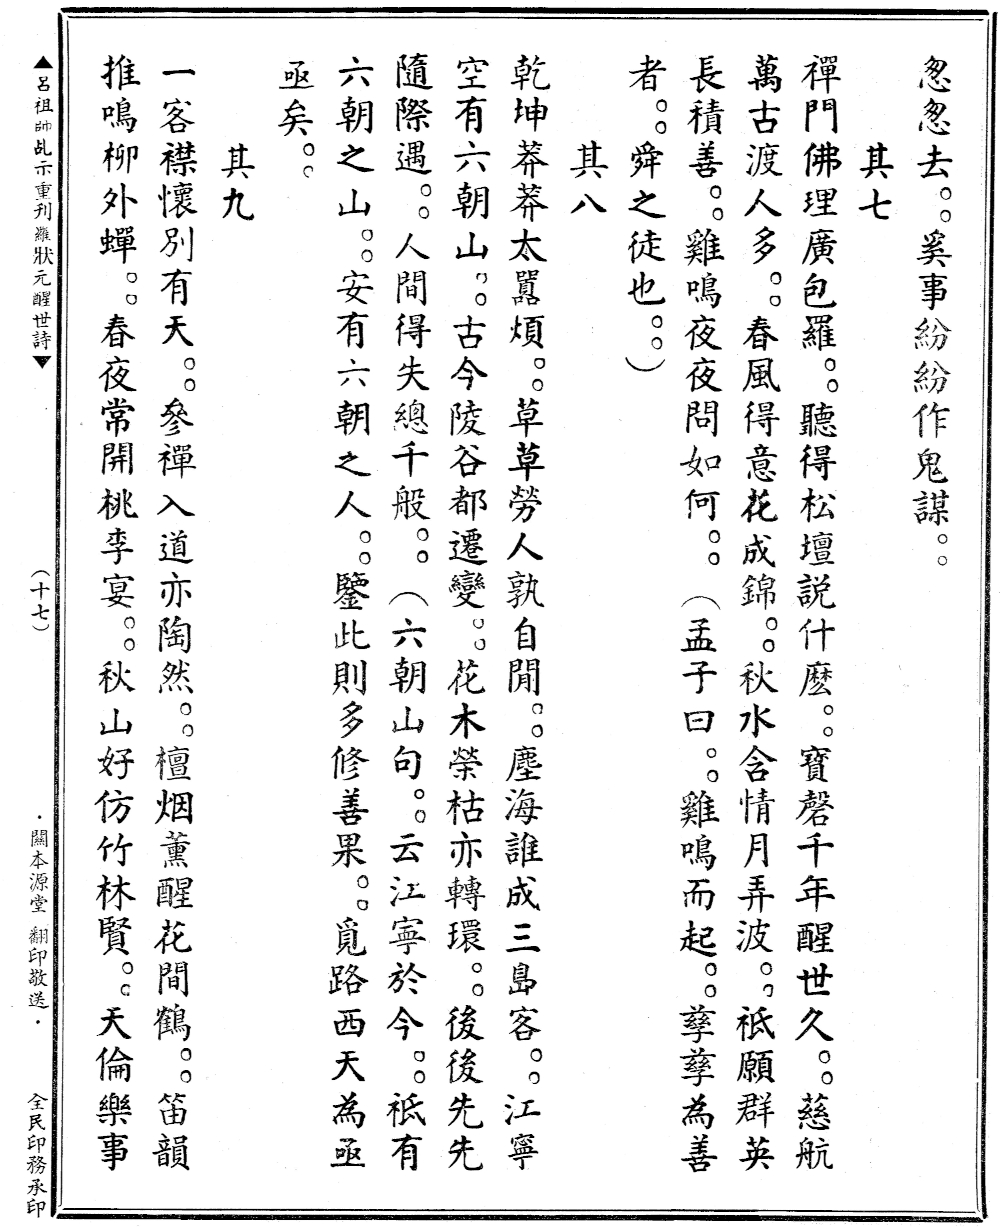 忽忽去。。奚事紛紛作鬼謀。。
其七
禪門佛理廣包羅。。聽得松壇說什麽。。寶磬千年醒世久。。慈航
萬古渡人多。。春風得意花成錦。。秋水含情月弄波。。祗願群英
長積善。。雞鳴夜夜問如何。。（孟子曰。。雞鳴而起。。孳孳為善
者。。舜之徒也。。）
其八
乾坤莽莽太囂煩。。草草勞人孰自閒。。塵海誰成三島客。。江寧
空有六朝山。。古今陵谷都遷變。。花木榮枯亦轉環。。後後先先
隨際遇。。人間得失總千般。。（六朝山句。。云江寧於今。。祗有
六朝之山。。安有六朝之人。。鑒此則多修善果。。覓路西天為亟
亟矣。。
其九
一客襟懷別有天。。參禪入道亦陶然。。檀烟薰醒花間鶴。。笛韻
推鳴柳外蟬。。春夜常開桃李宴。。秋山好仿竹林賢。。天倫樂事
▲呂祖師乩示重刊羅狀元醒世詩▼
（十七）
·關本源堂 翻印敬送·
全民印務承印